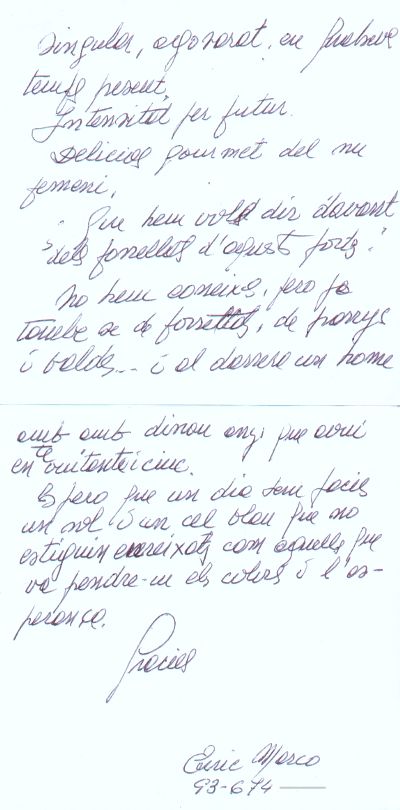 singular, agosarat, en
temps present,
Intensitat per futur.
Delicios gourmet del nu
femeni.
"Que hem vols dir davant
dels d'aquest forts."
No hem coneixes, pero jo
tambe se de, de panys
i baldes... i al darrera un home
amb amb dinou anys que avui
en te vuitanta i cinc.
Espero que un dia tem facis
un sol i un cel blau que no
estiguin enreixats com aquells que
va pendre-m els colors i l'es-
perança.
Gracies
Enric Marco
93-674